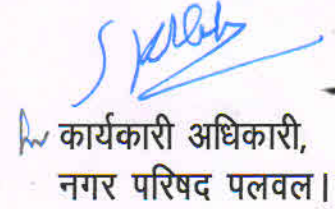 कार्यकारी अधिकारी,
नगर परिषद पलवल।